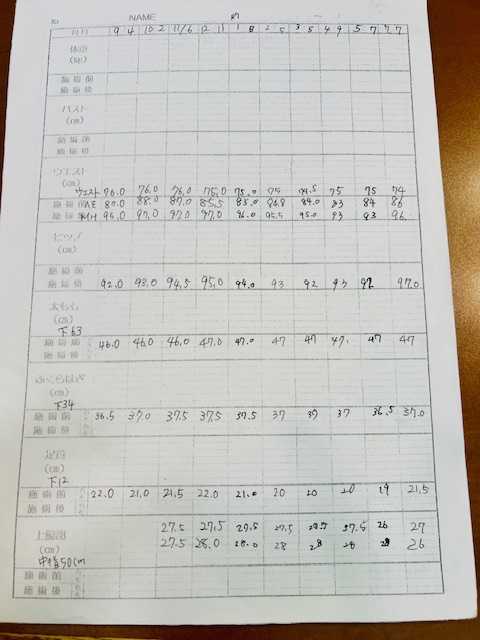 NAME
月日 9 4 10 2 11/6 12 11 1 8 2 5 3 5 4 9 5 7 7 7
体重
(kg)
施術前
施術後
バスト
(cm)
施術前
施術後
ウエスト
(cm)
ウエスト 76.0 76.0 76.0 75.0 75.0 75 74.5 75 75 74
施術前 88.0 87.0 85.5 85.0 84.0 84 86
施術後 97.0 97.0 97.0 96.0 95.5 95.0 93 93 96
ヒップ
(cm)
施術前
施術後 92.0 93.0 94.5 95.0 94.0 93 92 93 92 97.0
太もも
(cm)
下63
施術前 46.0 46.0 46.0 47.0 47.0 47 47 47. 47 47
施術後
ふくらはぎ
(cm)
下34
施術前 36.5 37.0 37.5 37.5 37.5 37 37 37 36.5 37.0
施術後
足首
(cm)
下12
施術前 22.0 21.0 21.5 22.0 21.0 20 20 20 19 21.5
施術後
27.5 27.5 27.5 27.5 27.5 27.5 26 27
上腕部 27.5 28.0 28.0 28 28 28 28 26
(cm)
中指50cm
施術前
施術後